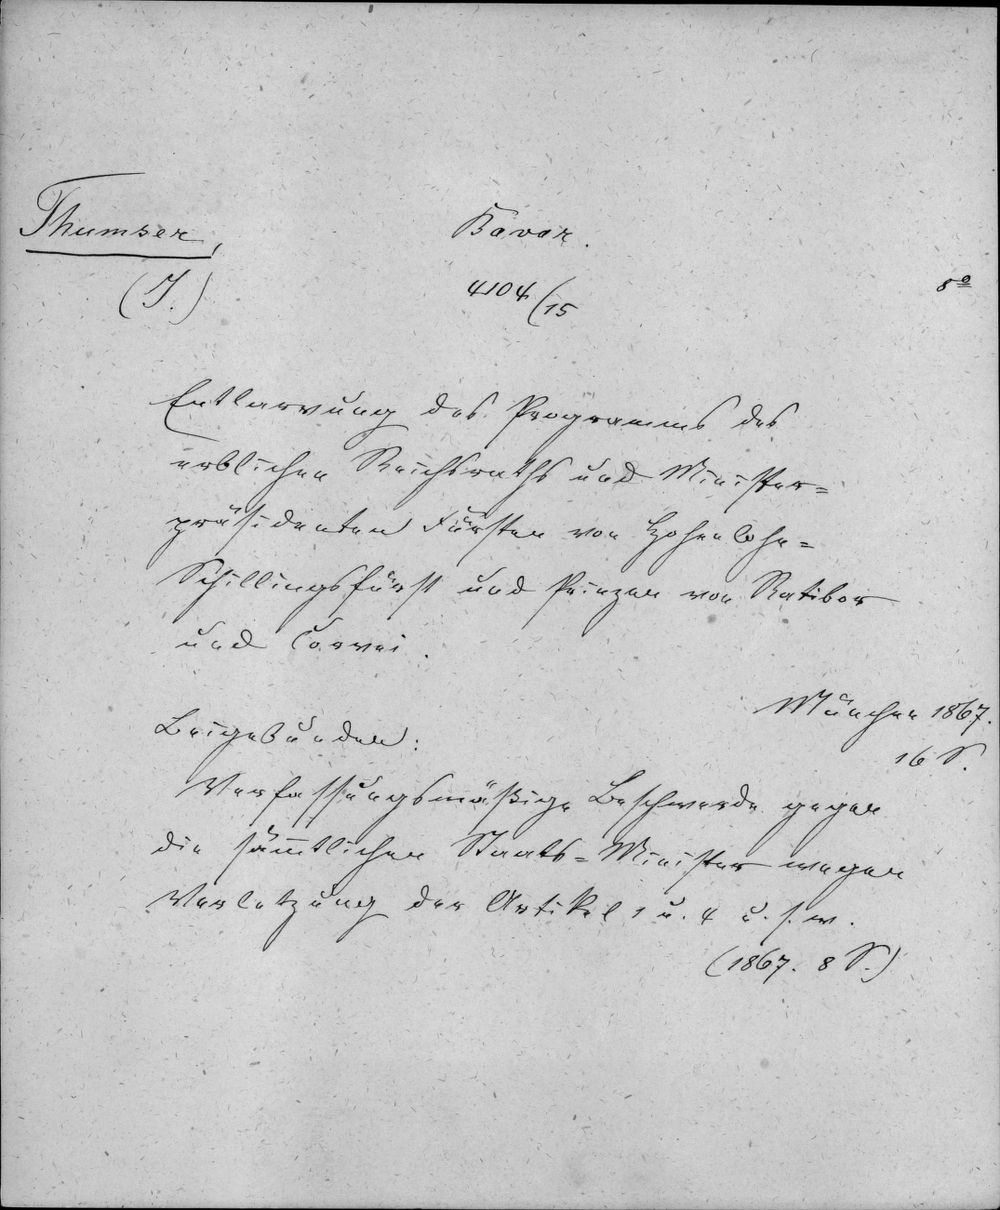 Thumser,
(J.)
Bavar.
4104/15
8º
Entlarvung des Programms des
erblichen Reichsraths und Minister=
präsidenten Fürsten von Hohenlohe=
Schillingsfürst und Prinzen von Ratibor
und Corvei.
München 1867.
16 S.
Beigebunden:
Verfassungsmäßige Beschwerde gegen
die sämmtlichen Staats=Minister wegen
Verletzung der Artikel 1 u. 4 u. s. w.
(1867. 8 S.)